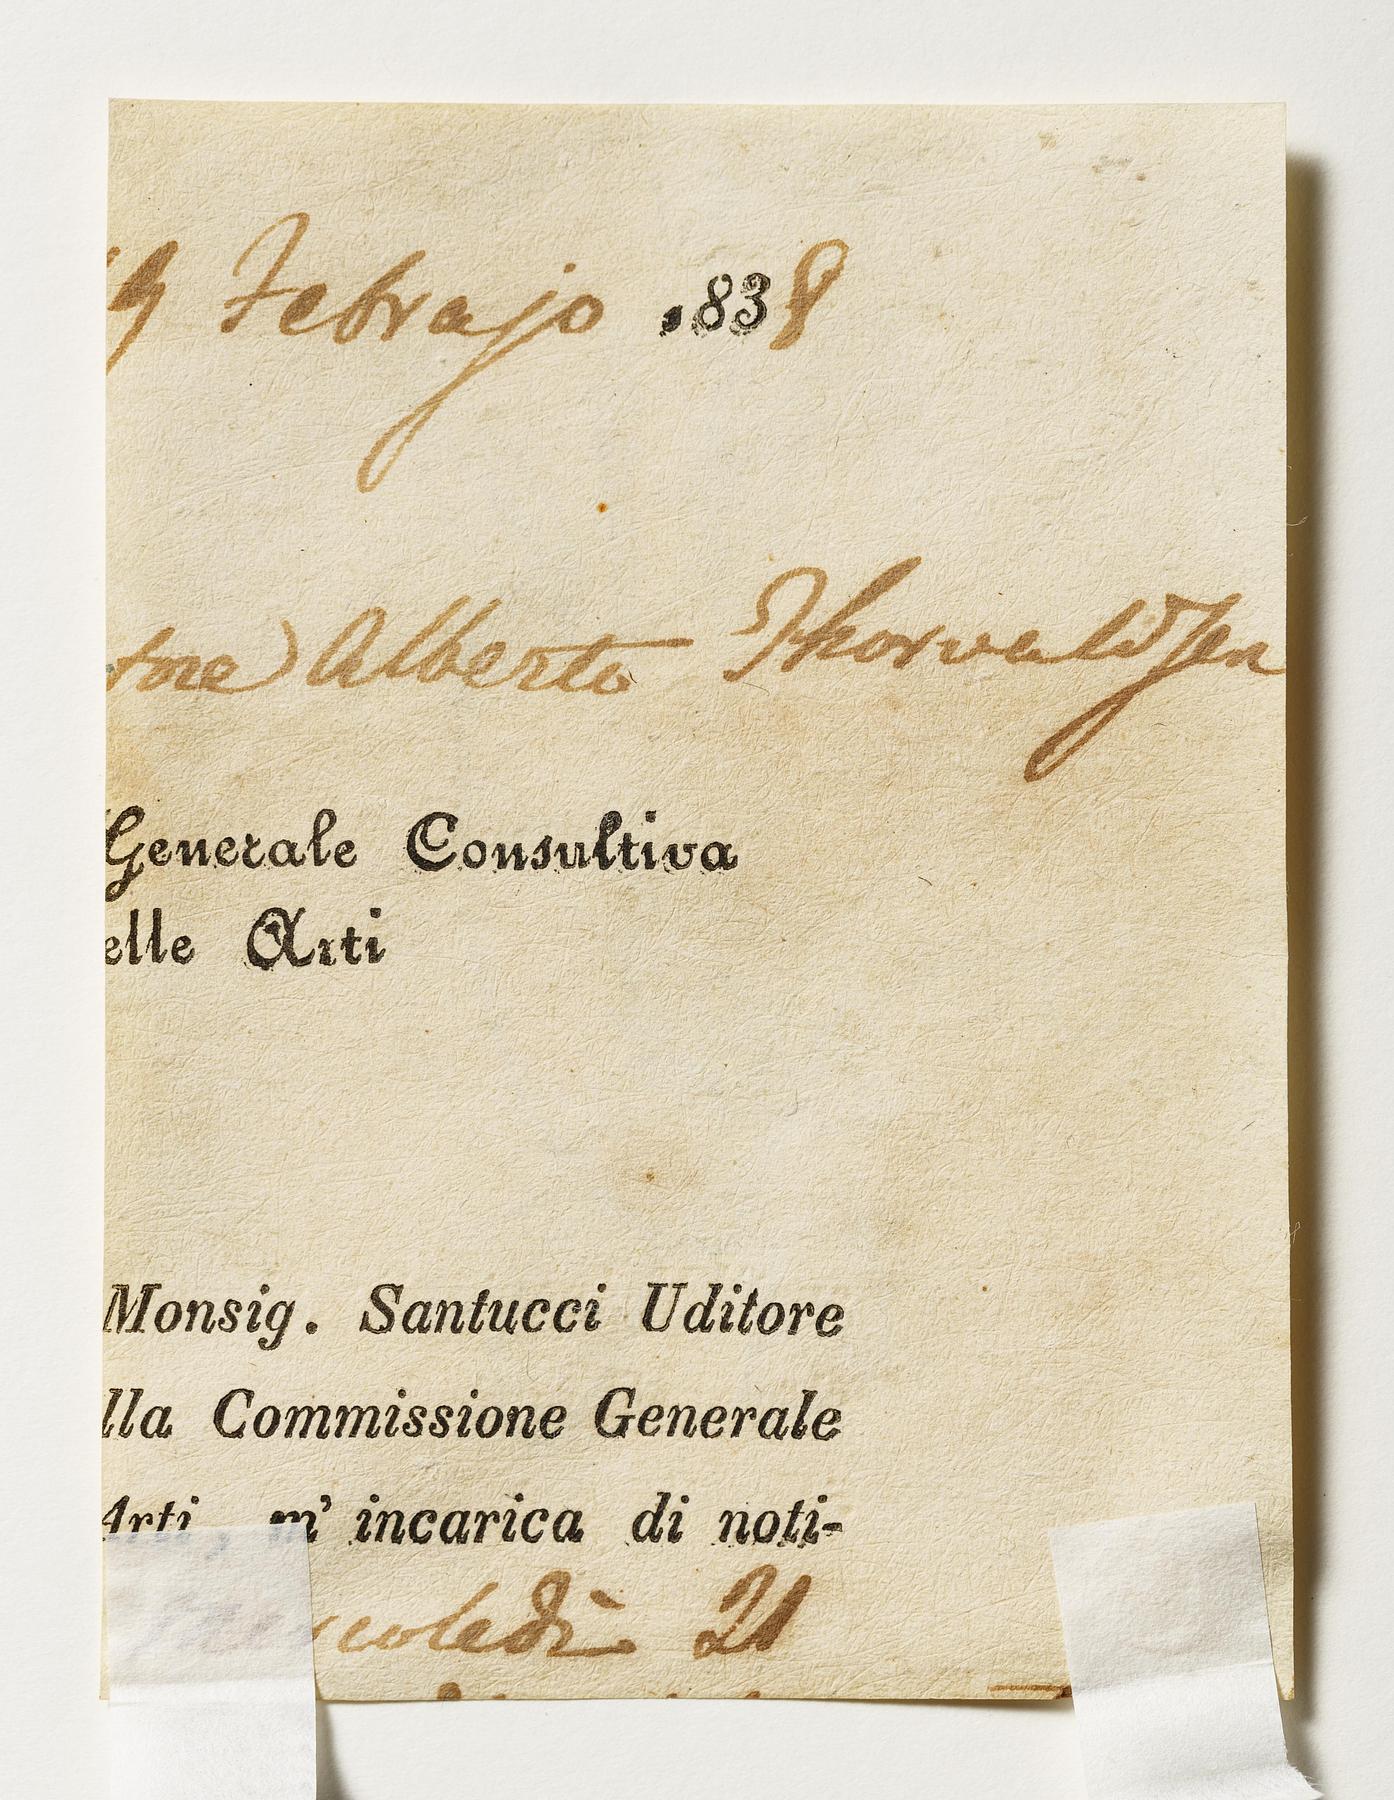 19 Febrajo 1838
tore Alberto Thorvaldsen
Generale Consultiva
elle Arti
Monsig. Santucci Uditore
lla Commissione Generale
Arti, m' incarica di noti-
coledì 21